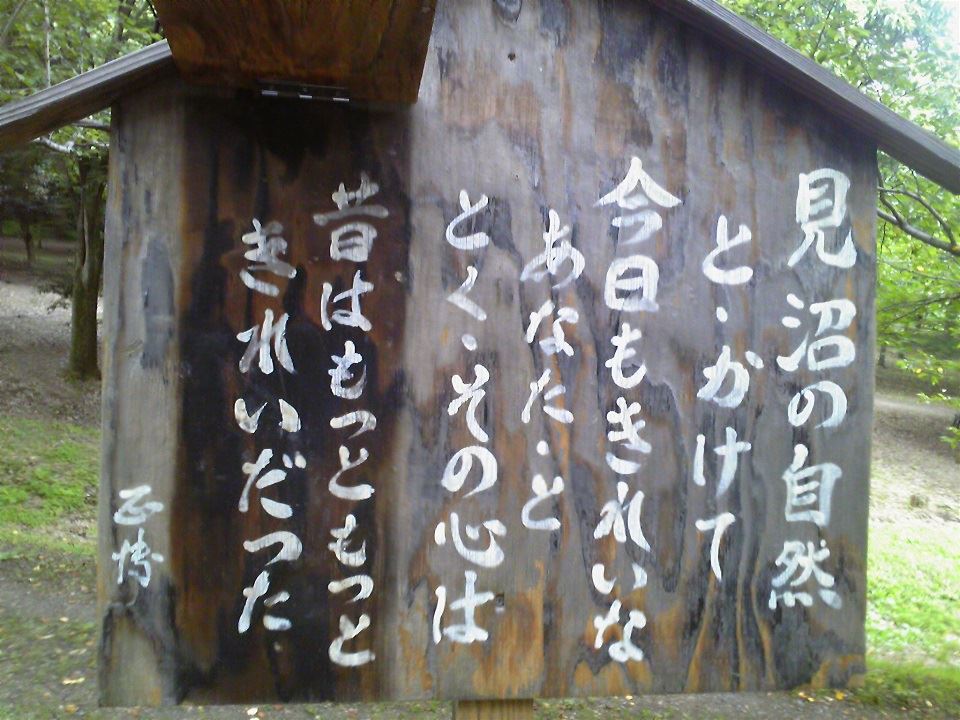 見沼の自然
と・かけて
今日もきれいな
あなた・と
とく・その心は
昔はもっともっと
きれいだった
正博